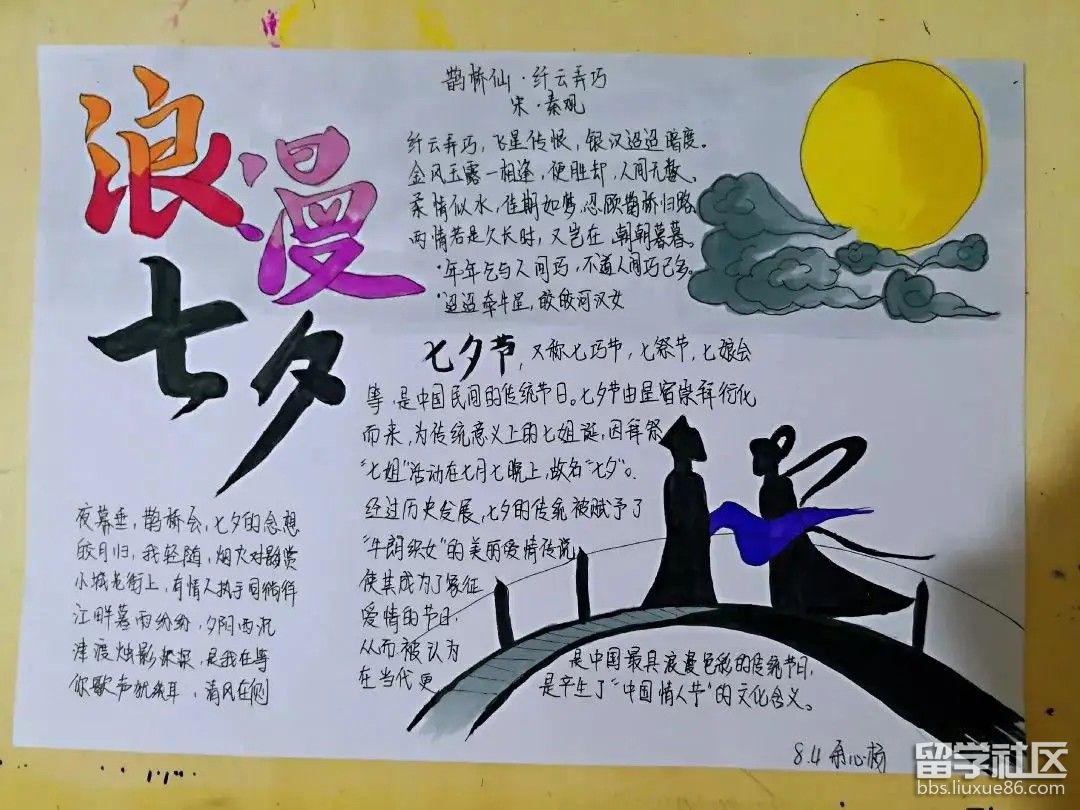 浪漫
七夕
鹊桥仙·纤云弄巧
宋·秦观
纤云弄巧，飞星传恨，银汉迢迢暗度。
金风玉露一相逢，便胜却，人间无数。
柔情似水，佳期如梦，忍顾鹊桥归路。
两情若是久长时，又岂在朝朝暮暮。
·年年乞与人间巧，不道人间巧已多。
·迢迢牵牛星，皎皎河汉女
七夕节，又称七巧节，七祭节，七娘会
等，是中国民间的传统节日。七夕节由星宿崇拜衍化
而来，为传统意义上的七姐诞，因拜祭
“七姐”活动在七月七晚上，故名“七夕”。
经过历史发展，七夕的传统被赋予了
“牛朗织女”的美丽爱情传说
使其成为了象征
爱情的节日，
从而被认为
在当代更
是中国最具浪漫色彩的传统节日，
是产生了“中国情人节”的文化含义。
夜幕垂，鹊桥会，七夕的念想
皎月归，我轻随，烟火对影赏
小城老街上，有情人执手同徜徉
江畔暮雨纷纷，夕阴西沉
津渡烛影，是我在等
你歌声犹在耳，清风在侧
8.4
留学社区
bbs.liuxue86.com